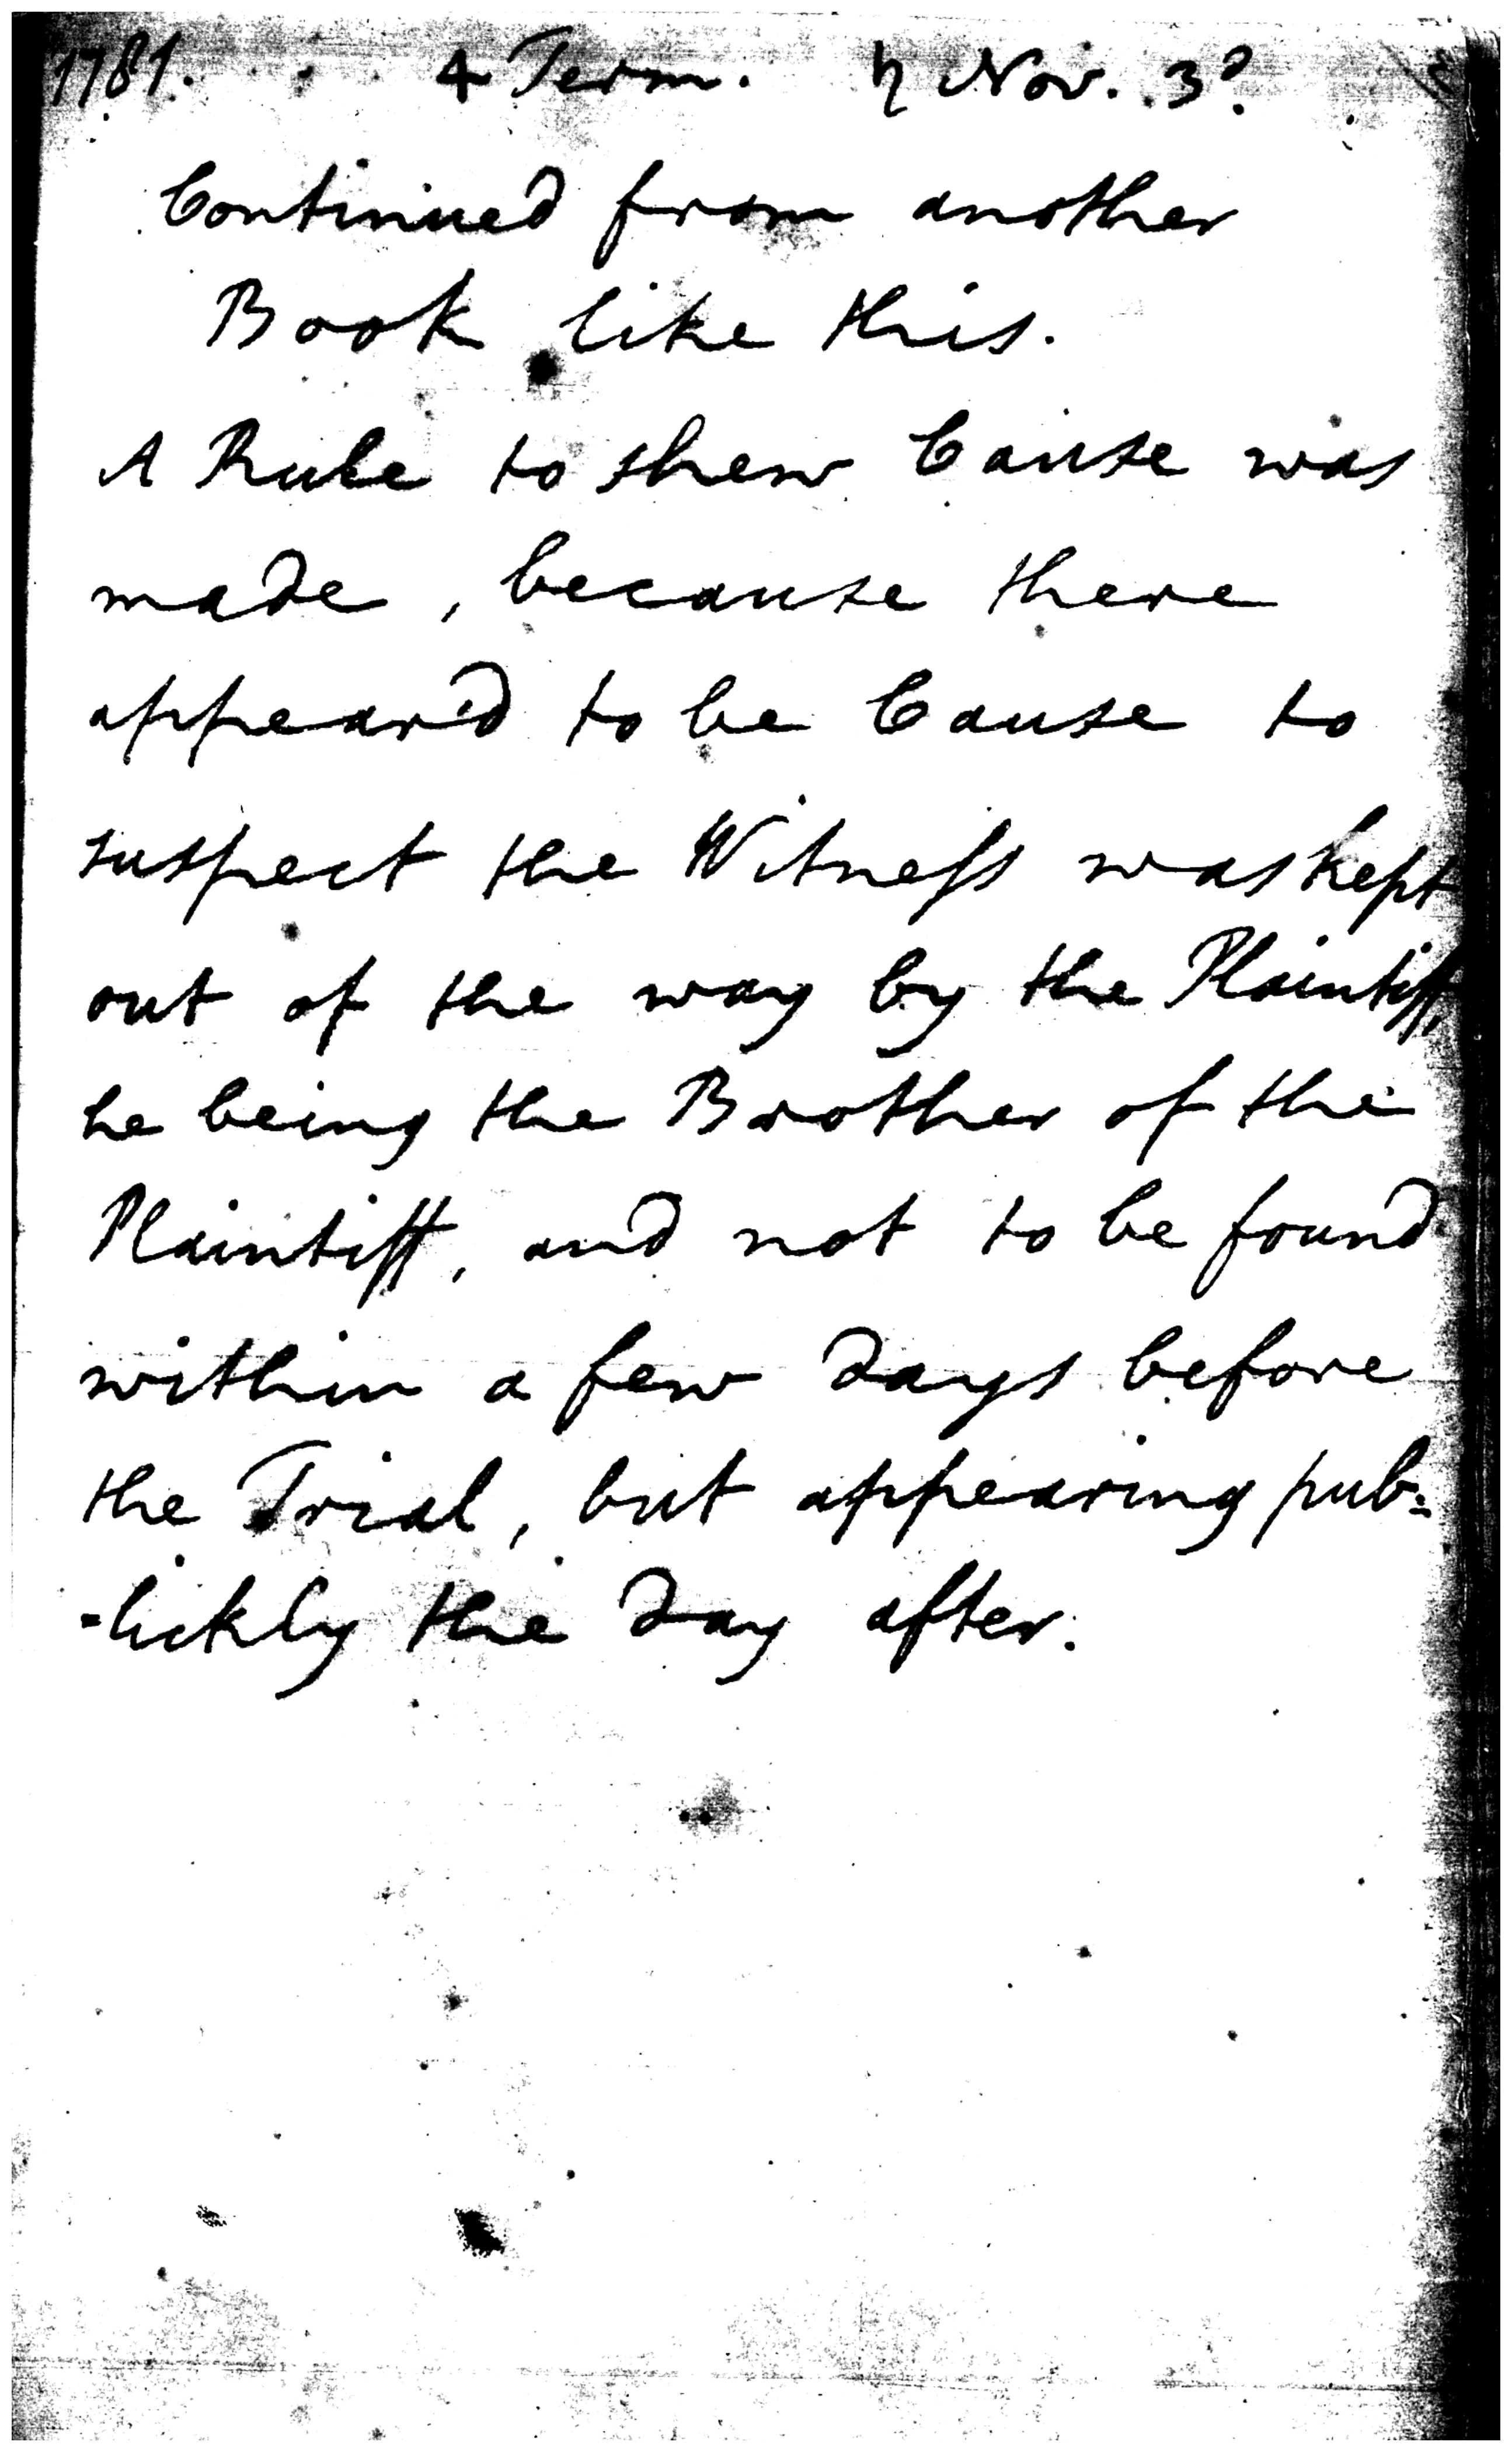 1781. 4 Term. ♄ Nov. 3?
Continued from another
Book like this.
A Rule to shew Cause was
made, because there
appear'd to be Cause to
suspect the Witness was kept
out of the way by the Plaintiff,
he being the Brother of the
Plaintiff, and not to be found
within a few Days before
the Trial, but appearing pub=
=lickly the Day after.